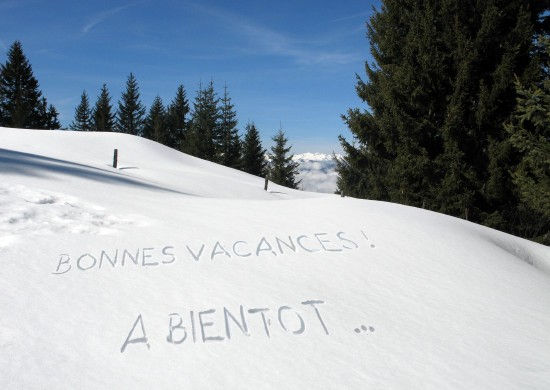 BONNES VACANCES !
A BIENTOT ...